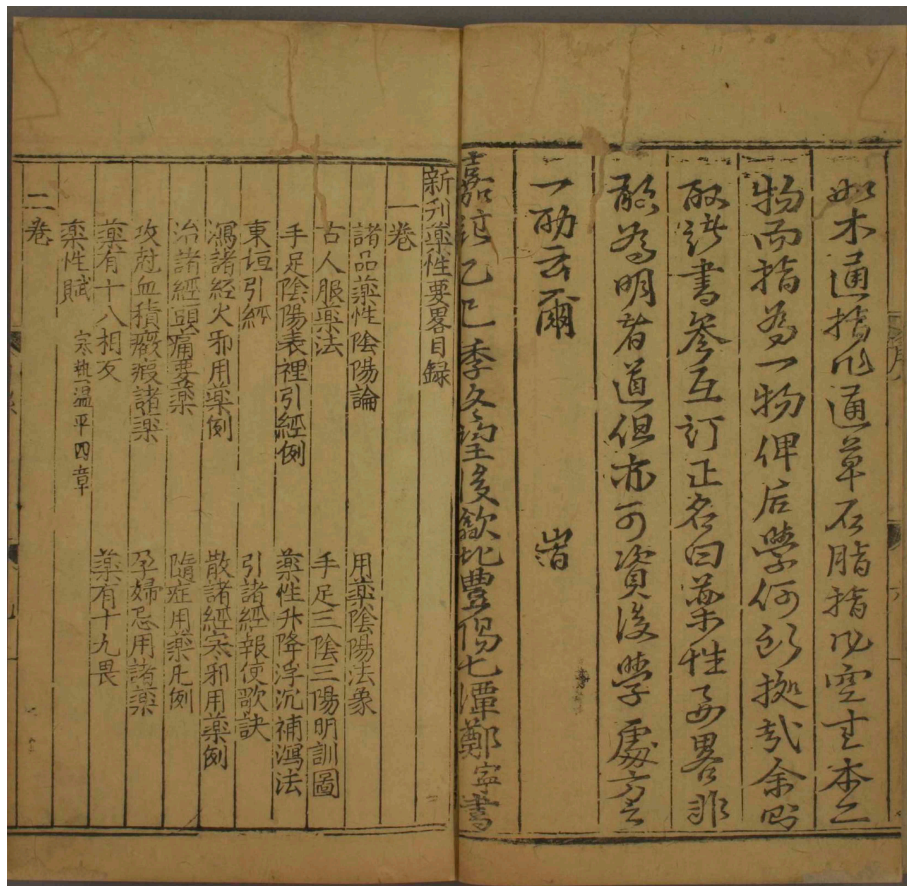 如木通指作通草石脂指作空青本二
物而指為一物俾后學何所據哉余昭
取諸書參互訂正名曰藥性要畧非
敢為明者道但亦可資後學處方之
一助云爾
嘉靖乙巳季冬望後歙北豐陽七潭鄭寧書
新刊藥性要畧目録
一卷
諸品藥性陰陽論 用藥陰陽法象
古人服藥法 手足三陰三陽明訓圖
手足陰陽表裡引經例 藥性升降浮沉補瀉法
東垣引經 引諸經報使歌訣
瀉諸經火邪用藥例 散諸經寒邪用藥例
治諸經頭痛要藥 隨症用藥凡例
攻尅血積癥瘕諸藥 孕婦忌用諸藥
藥有十八相反 藥有十九畏
藥性賦 寒熱温平四章
二卷